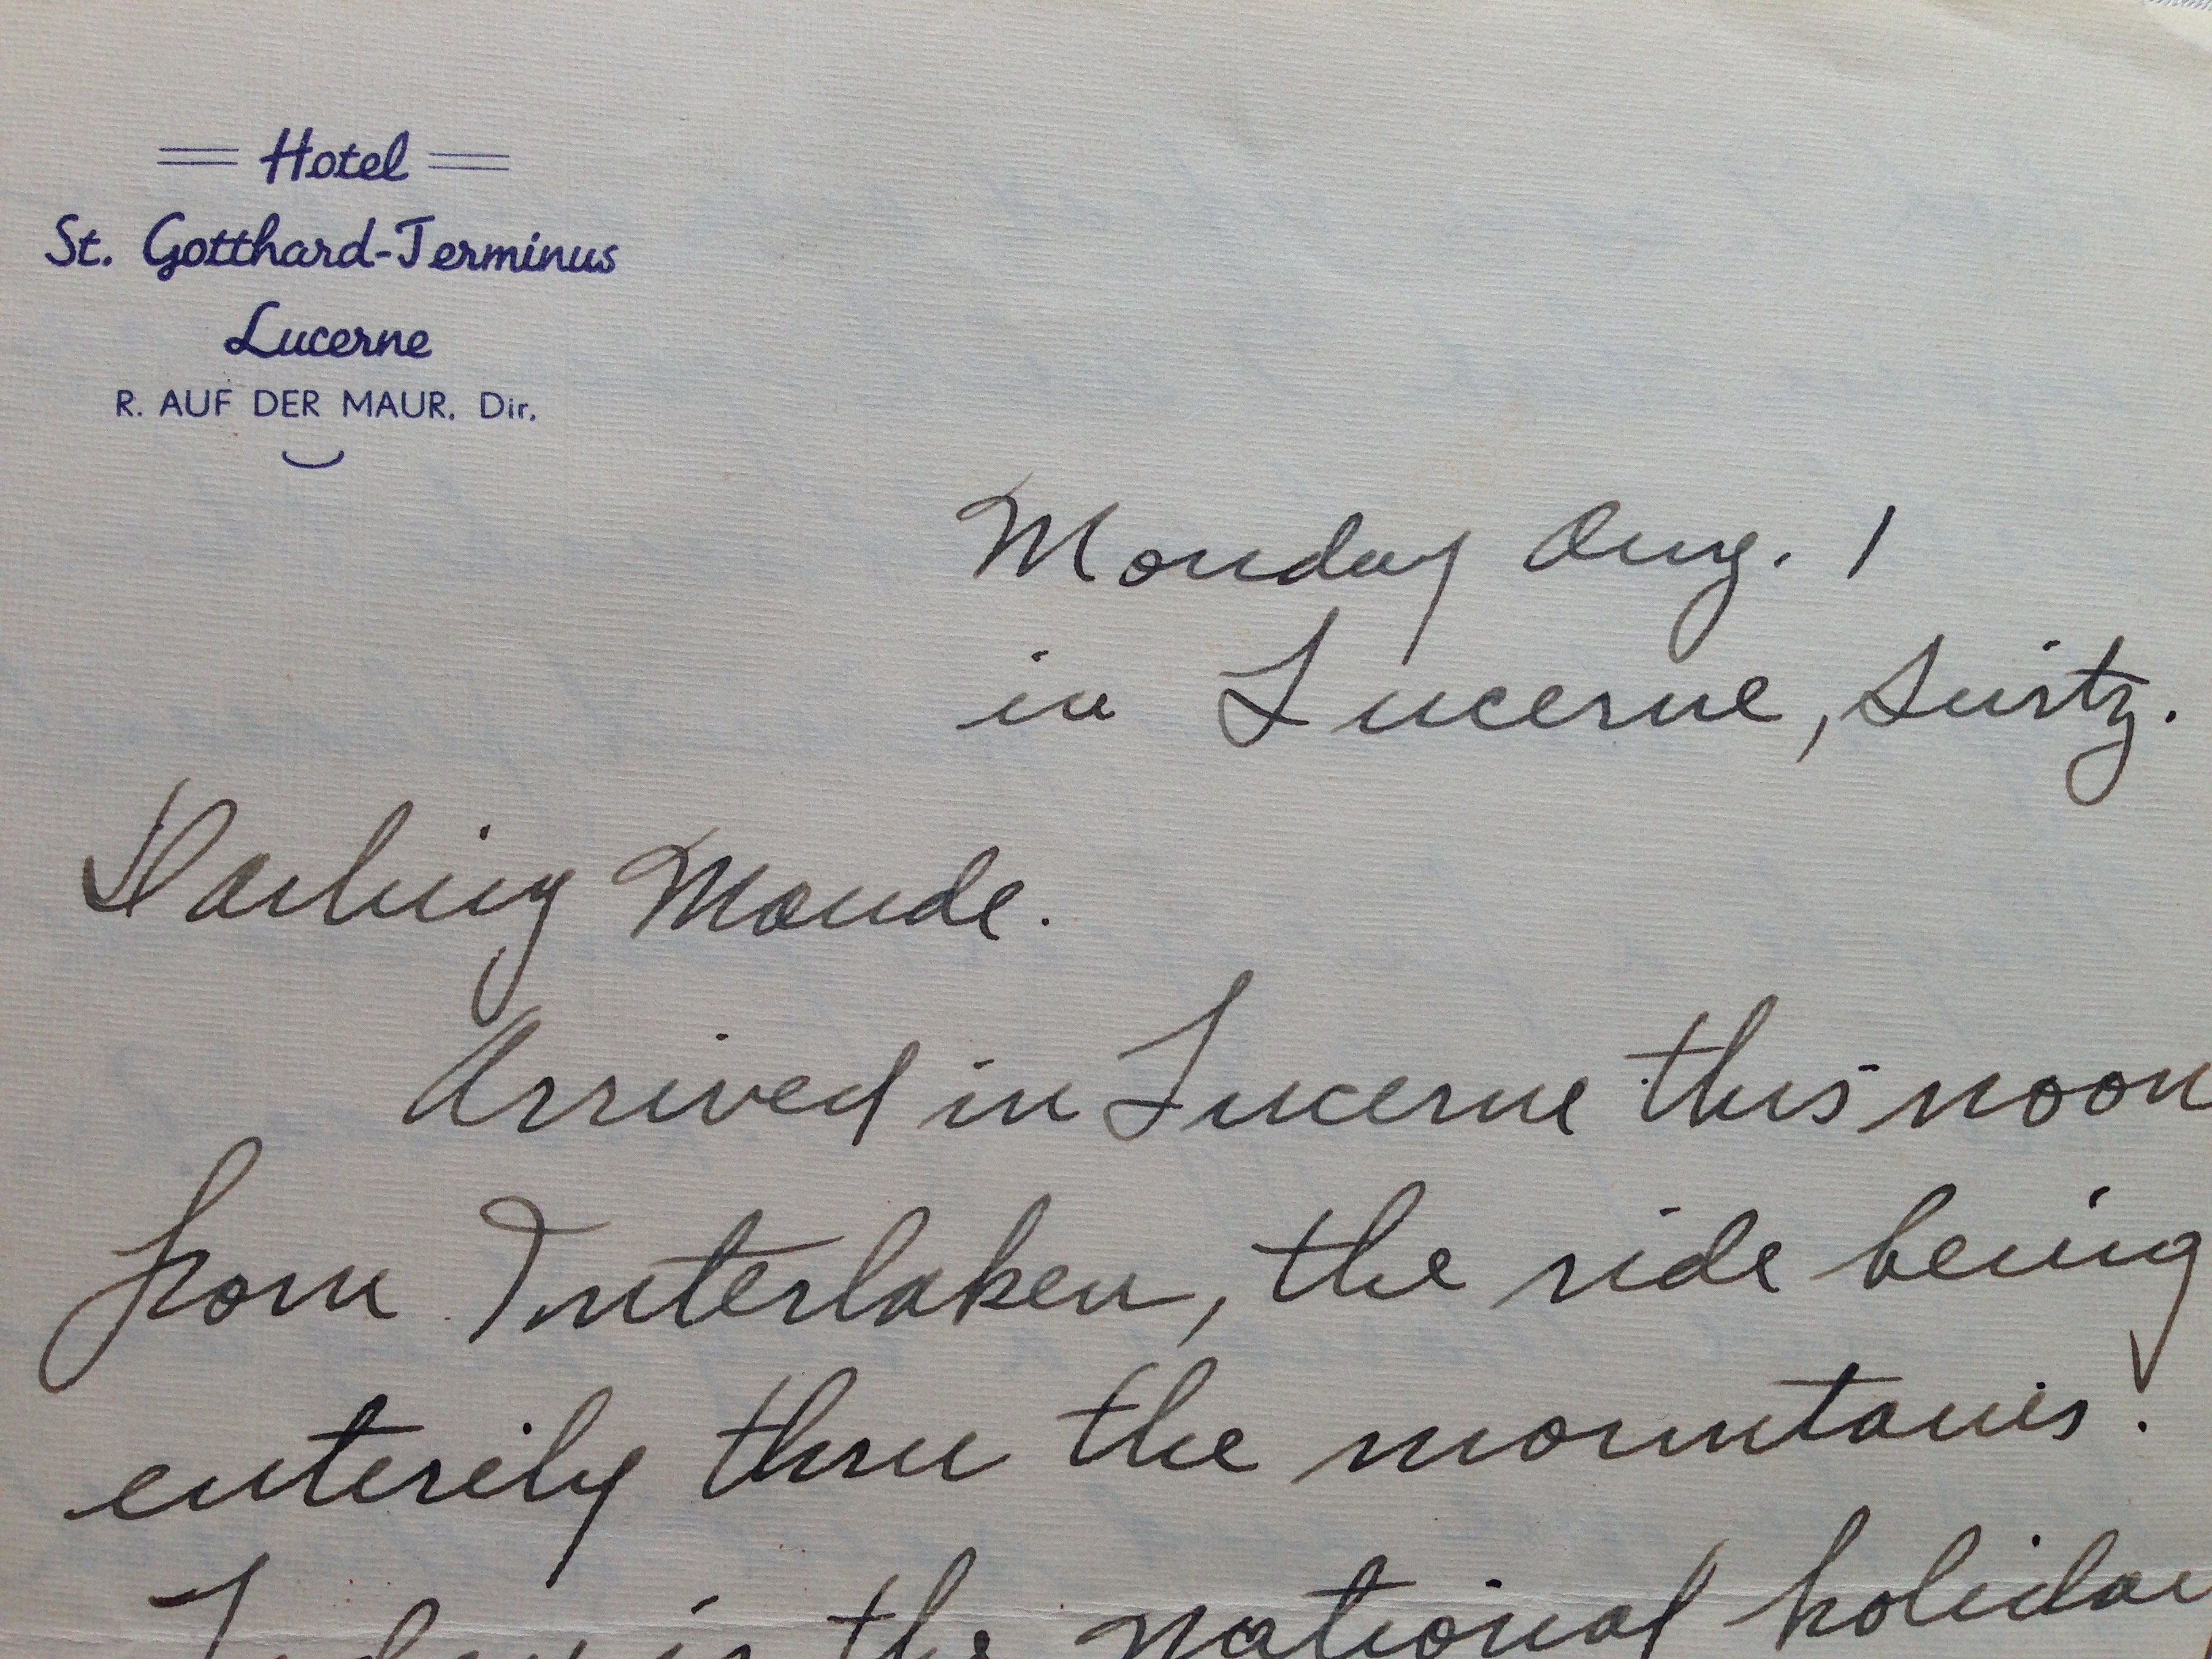 Hotel
St. Gotthard-Terminus
Lucerne
R. AUF DER MAUR. Dir.
Monday Aug. 1
in Lucerne, Switz.
Darling Maude.
Arrived in Lucerne this noon
from Interlaken, the ride being
enterily thru the mountains.
Today is the national holiday